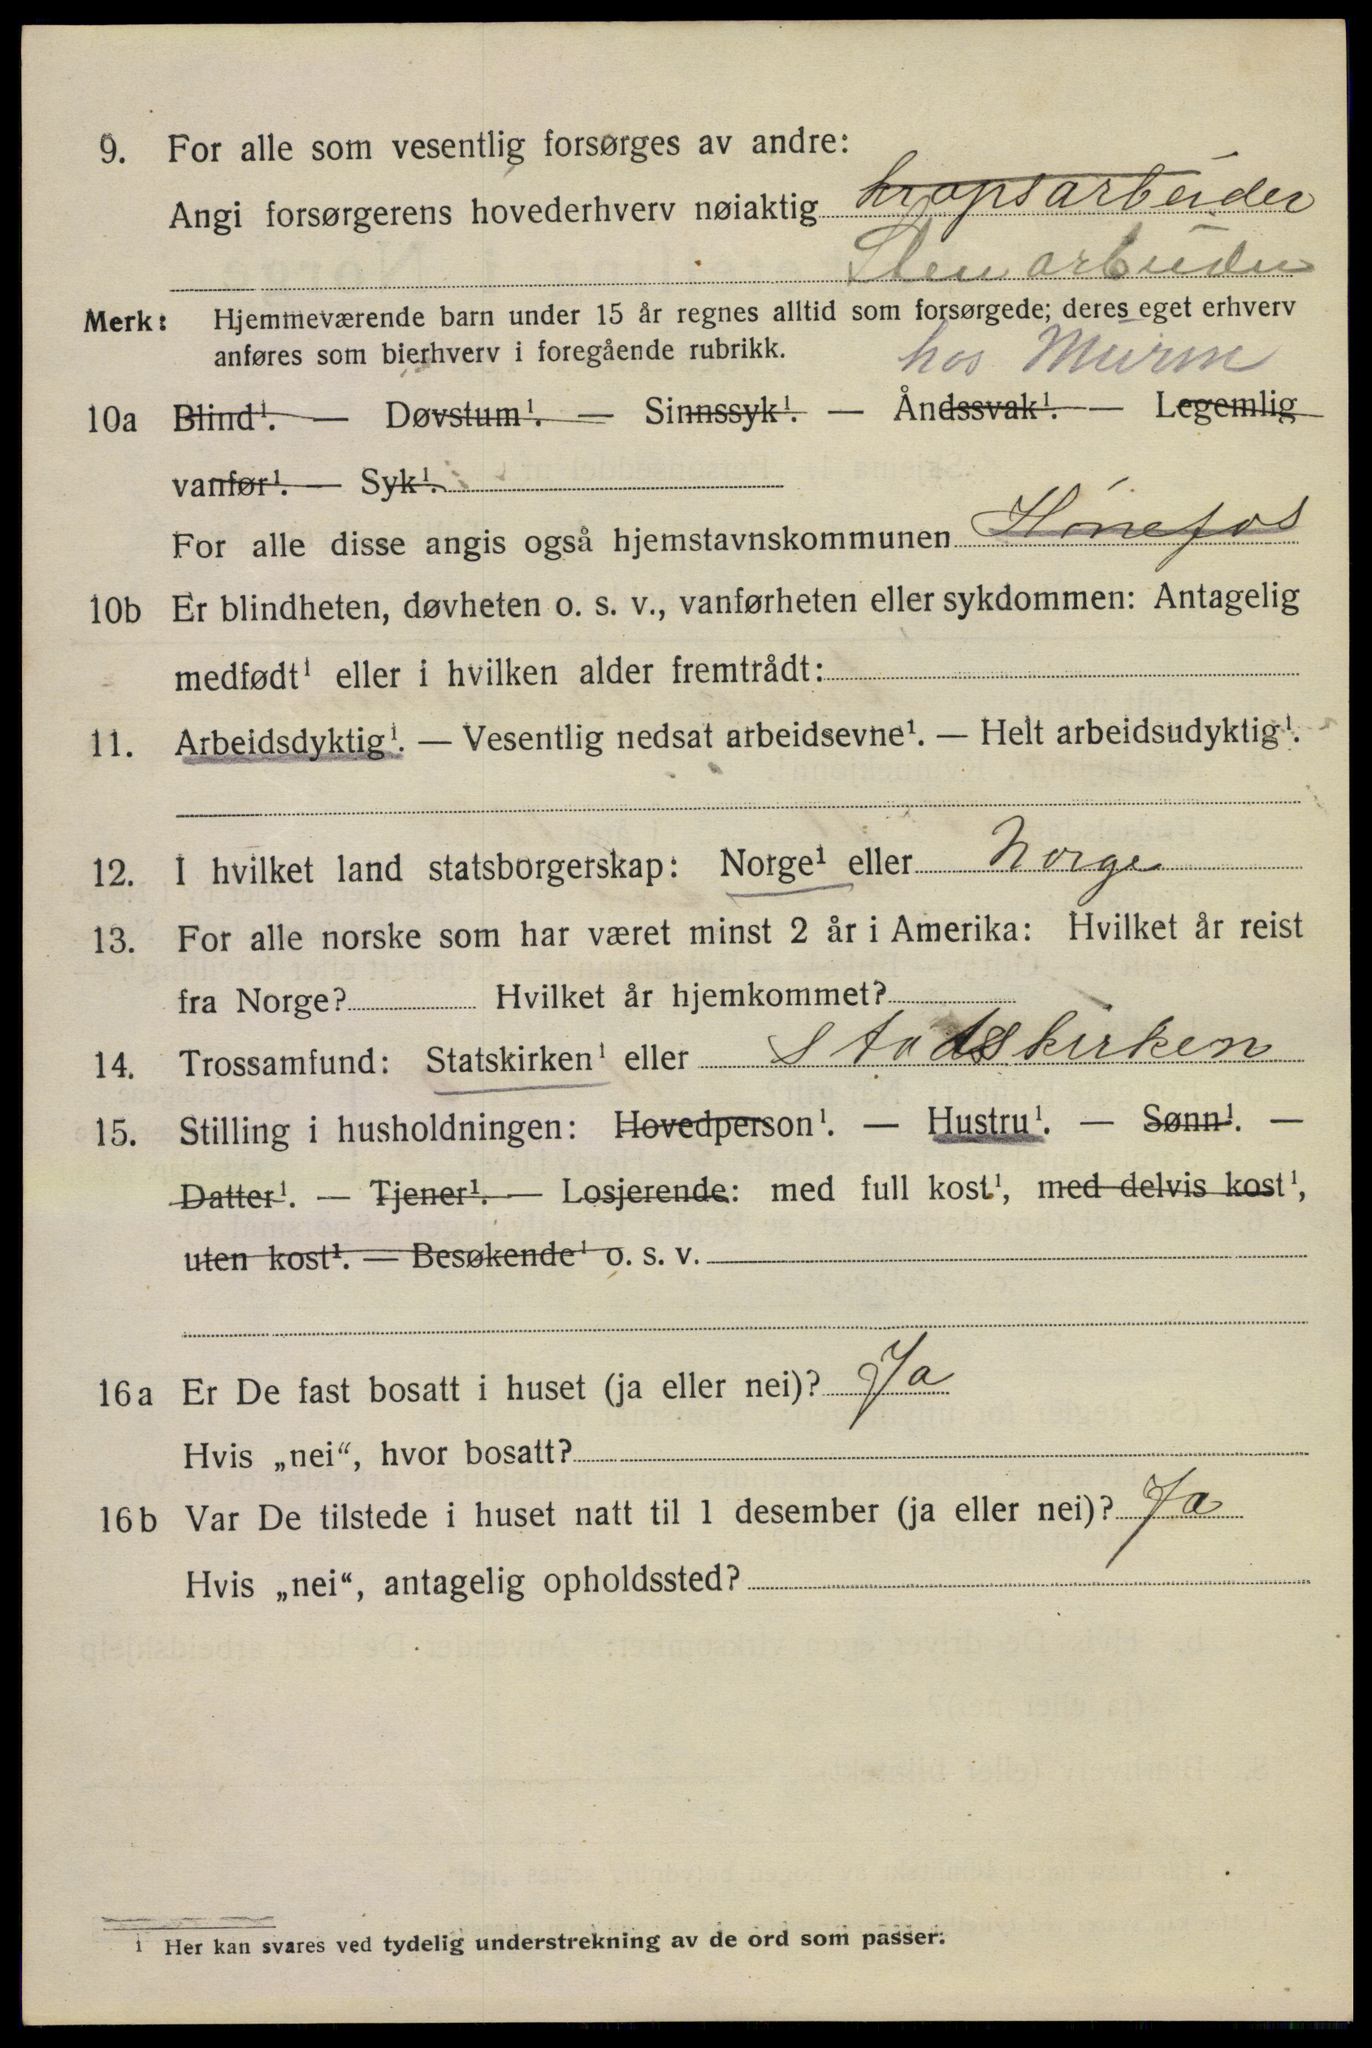 9. For alle som vesentlig forsørges av andre:
Angi forsørgerens hovederhverv nøiaktig kropsarbeider
Stenarbeider
Merk: Hjemmeværende barn under 15 år regnes alltid som forsørgede; deres eget erhverv
anføres som bierhverv i foregående rubrikk. hos
10a Blind¹. — Døvstum¹. — Sinnssyk¹. — Åndssvak¹. — Legemlig
vanfør¹. — Syk¹.
For alle disse angis også hjemstavnskommunen Hønefos
10b Er blindheten, døvheten o. s. v., vanførheten eller sykdommen: Antagelig
medfødt¹ eller i hvilken alder fremtrådt:
11. Arbeidsdyktig¹. — Vesentlig nedsat arbeidsevne¹. — Helt arbeidsudyktig¹.
12. I hvilket land statsborgerskap: Norge¹ eller Norge
13. For alle norske som har været minst 2 år i Amerika: Hvilket år reist
fra Norge? Hvilket år hjemkommet?
14. Trossamfund: Statskirken¹ eller Statskirken
15. Stilling i husholdningen: Hovedperson¹. — Hustru¹. — Sønn¹. —
Datter¹. — Tjener¹. — Losjerende: med full kost¹, med delvis kost¹,
uten kost¹. — Besøkende¹ o. s. v.
16a Er De fast bosatt i huset (ja eller nei)? Ja
Hvis „nei“, hvor bosatt?
16b Var De tilstede i huset natt til 1 desember (ja eller nei)? Ja
Hvis „nei“, antagelig opholdssted?
1 Her kan svares ved tydelig understrekning av de ord som passer.